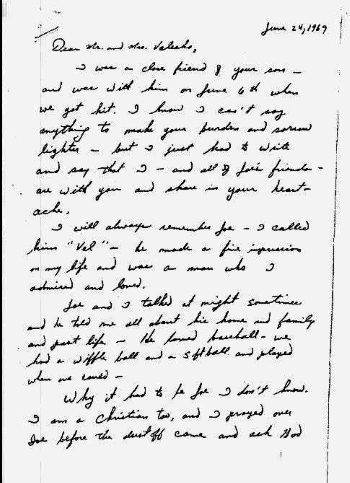 June 24, 1969
Dear Mr. and Mrs. Valesho,
I was a close friend of your son –
and was with him on June 6th when
we got hit. I know I can't say
anything to make your burden and sorrow
lighter – but I just had to write
and say that I – and all of Joe's friends –
are with you and share in your heart-
ache.
I will always remember Joe – I called
him "Val" – he made a fine impression
on my life and was a man who I
admired and loved.
Joe and I talked at night sometimes
and he told me all about his home and family
and past life – He loved baseball – we
had a wiffle ball and a softball and played
when we could –
Why it had to be Joe I don't know.
I am a Christian too, and I prayed over
Joe before the dustoff came and ask God